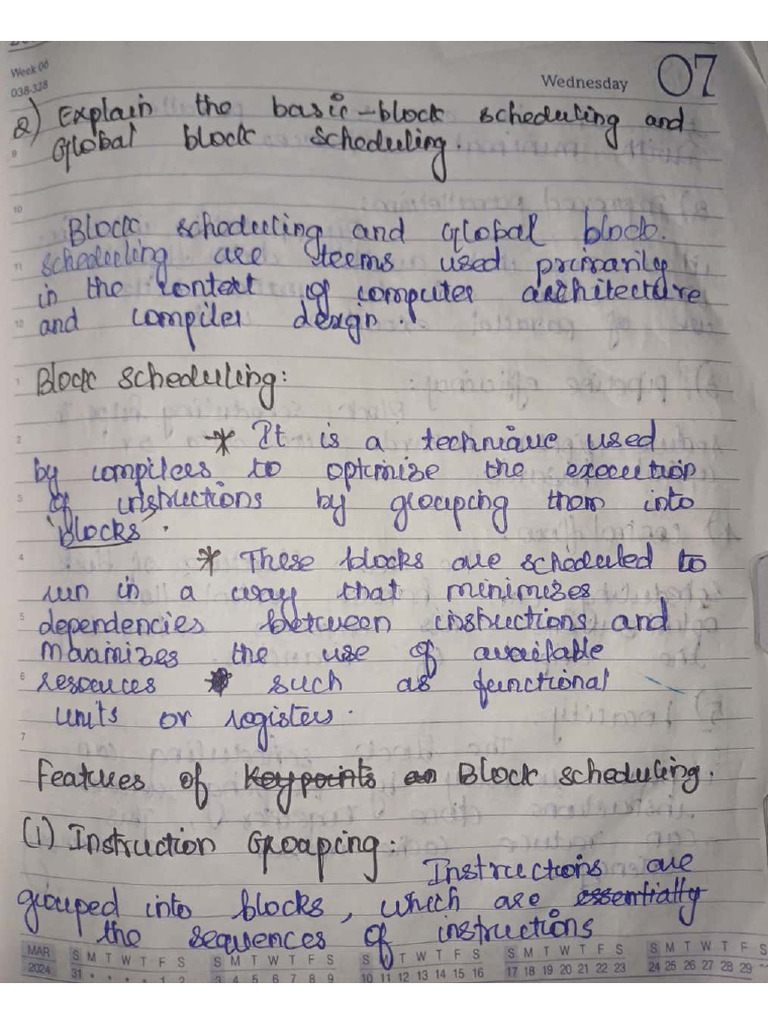 Week 06
038-328
Wednesday 07
2) Explain the basic-block scheduling and
Global block scheduling.
Block scheduling and global block.
scheduling are terms used primarily
in the context of computer architecture
and compiler design.
Block scheduling:
* It is a technique used
by compilers to optimise the execution
of instructions by grouping them into
'Blocks'.
* These blocks are scheduled to
run in a way that minimizes
dependencies between instructions and
maximizes the use of available
resources such as functional
units or registers.
Features of Key points an Block scheduling.
(1) Instruction Grouping:
Instructions are
grouped into blocks, which are essentially
the sequences of instructions
MAR S M T W T F S S M T W T F S S M T W T F S S M T W T F S S M T W T F S
2024 31 • • • • 1 2 3 4 5 6 7 8 9 10 11 12 13 14 15 16 17 18 19 20 21 22 23 24 25 26 27 28 29